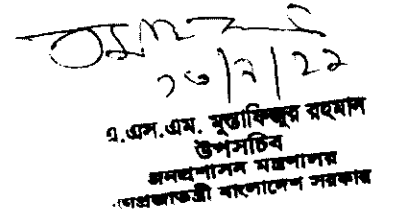 এ.এস.এম. মুস্তাফিজুর রহমান
উপসচিব
জনপ্রশাসন মন্ত্রণালয়
গণপ্রজাতন্ত্রী বাংলাদেশ সরকার